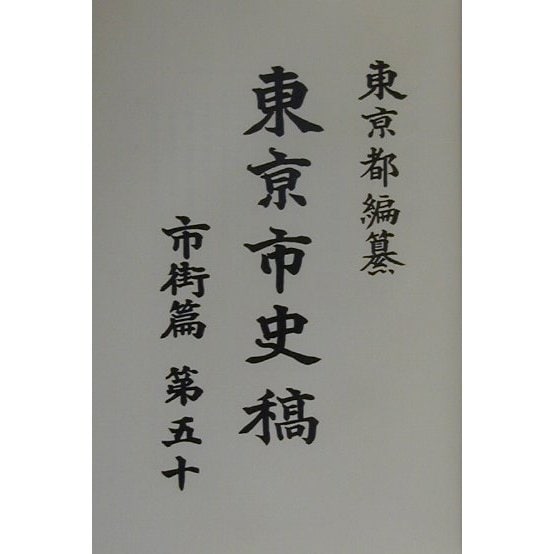 東京都編纂
東京市史稿
市街篇 第五十